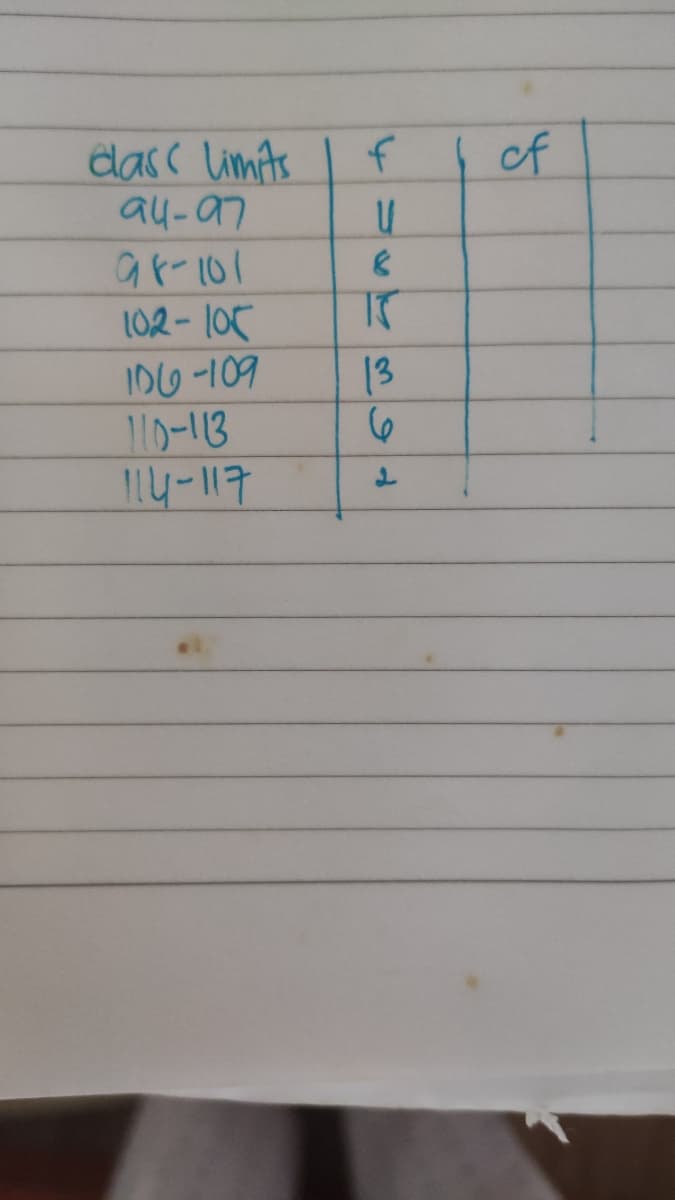 class limits f cf
94-97 4
98-101 8
102-105 15
106-109 13
110-113 6
114-117 2